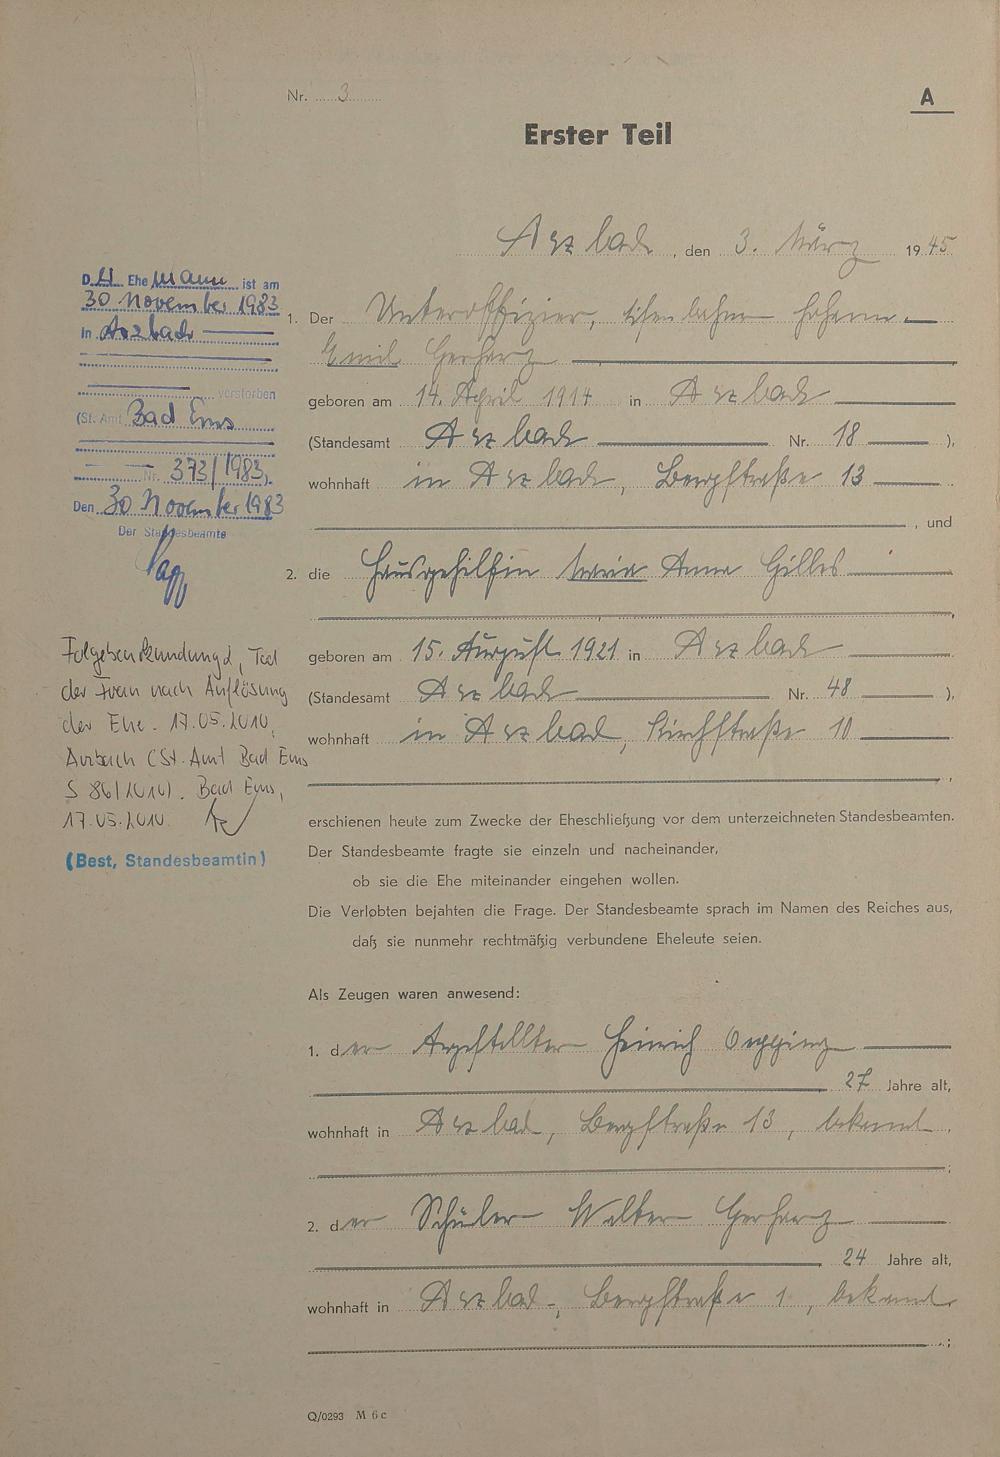 Nr. 3
A
Erster Teil
Arzbach, den 3. März 1945
Der Ehemann ist am
30 November 1983
in Arzbach
verstorben
(St. Amt Bad Ems
Nr. 373/1983).
Den 30 November 1983
Der Standesbeamte
Folgebeurkundung 2, Tod
der Frau nach Auflösung
der Ehe. 17.05.2010,
Arzbach (St. Amt Bad Ems
S 86/2010). Bad Ems,
17.05.2010.
(Best, Standesbeamtin)
1. Der Unteroffizier,
Emil Gerharz
geboren am 14. April 1914 in Arzbach
(Standesamt Arzbach Nr. 18 ),
wohnhaft in Arzbach, Bergstraße 13
, und
2. die Hausgehilfin Maria Anna Gilles
,
geboren am 15. August 1921 in Arzbach
(Standesamt Arzbach Nr. 48 ),
wohnhaft in Arzbach, Kirchstraße 10
,
erschienen heute zum Zwecke der Eheschließung vor dem unterzeichneten Standesbeamten.
Der Standesbeamte fragte sie einzeln und nacheinander,
ob sie die Ehe miteinander eingehen wollen.
Die Verlobten bejahten die Frage. Der Standesbeamte sprach im Namen des Reiches aus,
daß sie nunmehr rechtmäßig verbundene Eheleute seien.
Als Zeugen waren anwesend:
1. der Angestellter Heinrich
27 Jahre alt,
wohnhaft in Arzbach, Bergstraße 13, bekannt
;
2. der Schüler Walter Gerharz
24 Jahre alt,
wohnhaft in Arzbach, Bergstraße 1, bekannt
;
Q/0293 M 6c